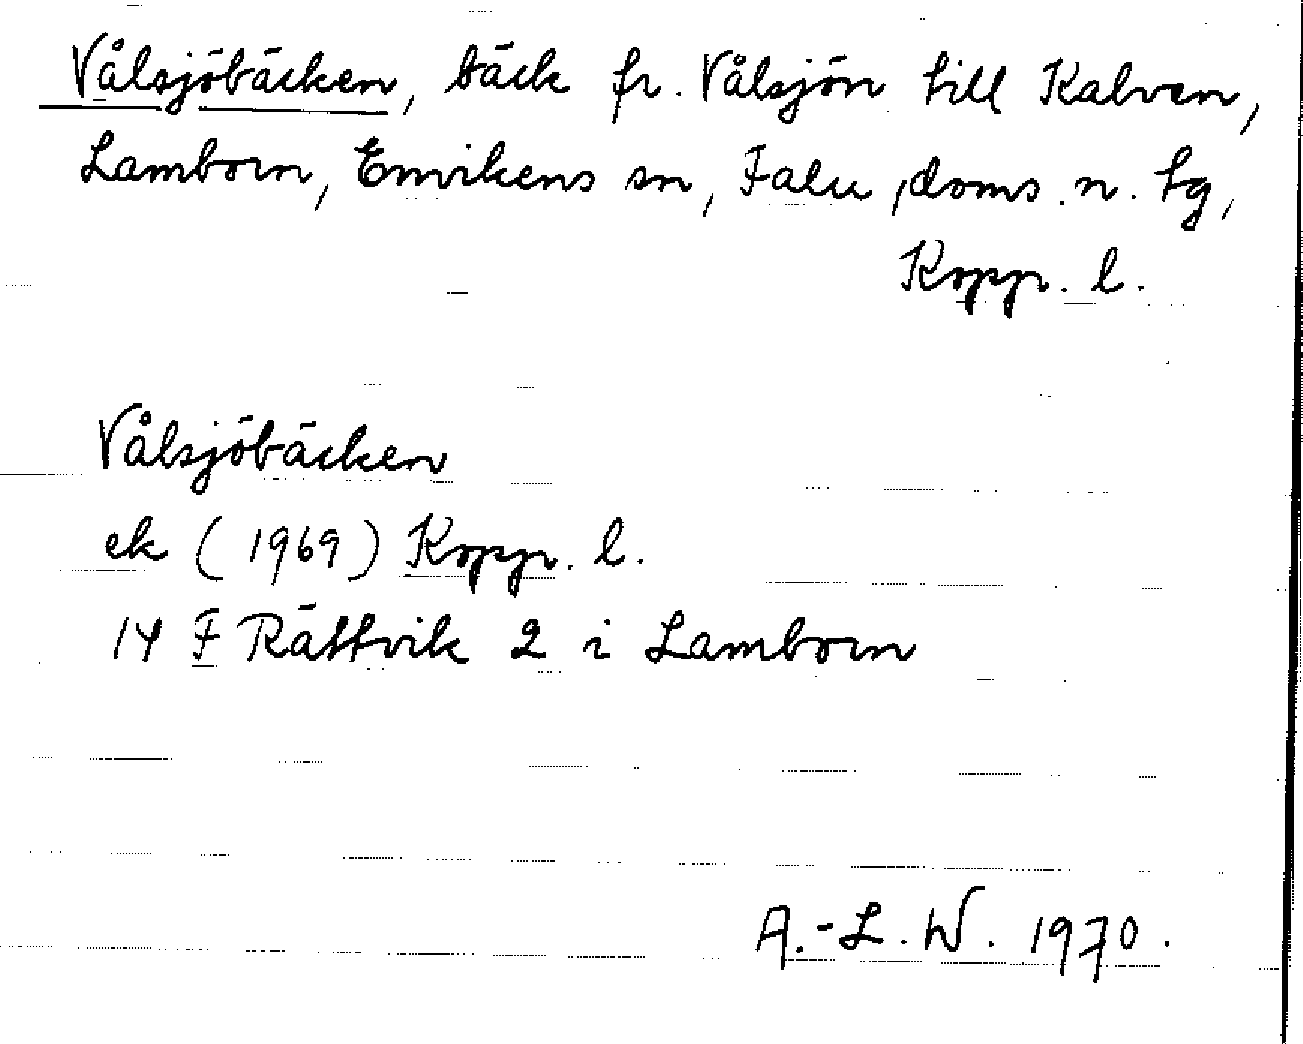 Vålsjöbäcken, bäck fr. Vålsjön till Kalven,
Lamborn, Envikens sn, Falu doms. n. tg,
Kopp. l.
Vålsjöbäcken
ek (1969) Kopp. l.
14 F Rättvik 2 i Lamborn
A.-L. W. 1970.